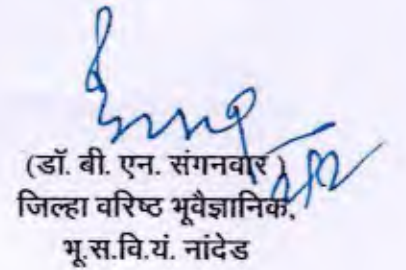 (डॉ. बी. एन. संगनवार )
जिल्हा वरिष्ट भूवैज्ञानिक,
भू.स.वि.यं. नांदेड